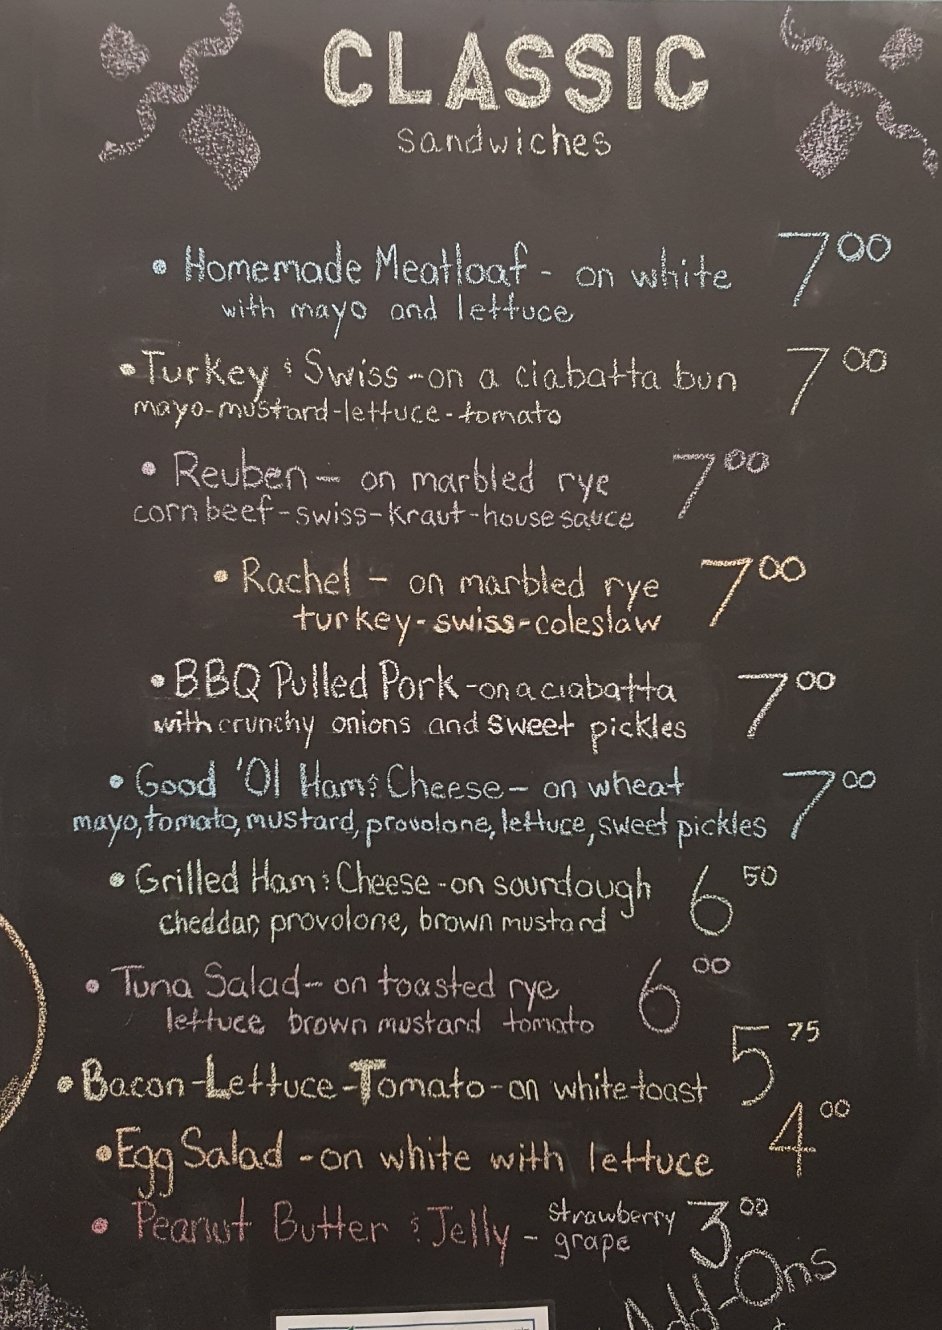 CLASSIC
sandwiches
• Homemade Meatloaf - on white 7 00
with mayo and lettuce
• Turkey & Swiss - on a ciabatta bun 7 00
mayo-mustard-lettuce-tomato
• Reuben - on marbled rye 7 00
corn beef-swiss-kraut-house sauce
• Rachel - on marbled rye 7 00
turkey-swiss-coleslaw
• BBQ Pulled Pork - on a ciabatta 7 00
with crunchy onions and sweet pickles
• Good 'Ol Ham & Cheese - on wheat 7 00
mayo, tomato, mustard, provolone, lettuce, sweet pickles
• Grilled Ham & Cheese - on sourdough 6 50
cheddar, provolone, brown mustard
• Tuna Salad - on toasted rye 6 00
lettuce brown mustard tomato
• Bacon-Lettuce-Tomato - on white toast 5 75
• Egg Salad - on white with lettuce 4 00
• Peanut Butter & Jelly - strawberry 3 00
grape
Add-Ons